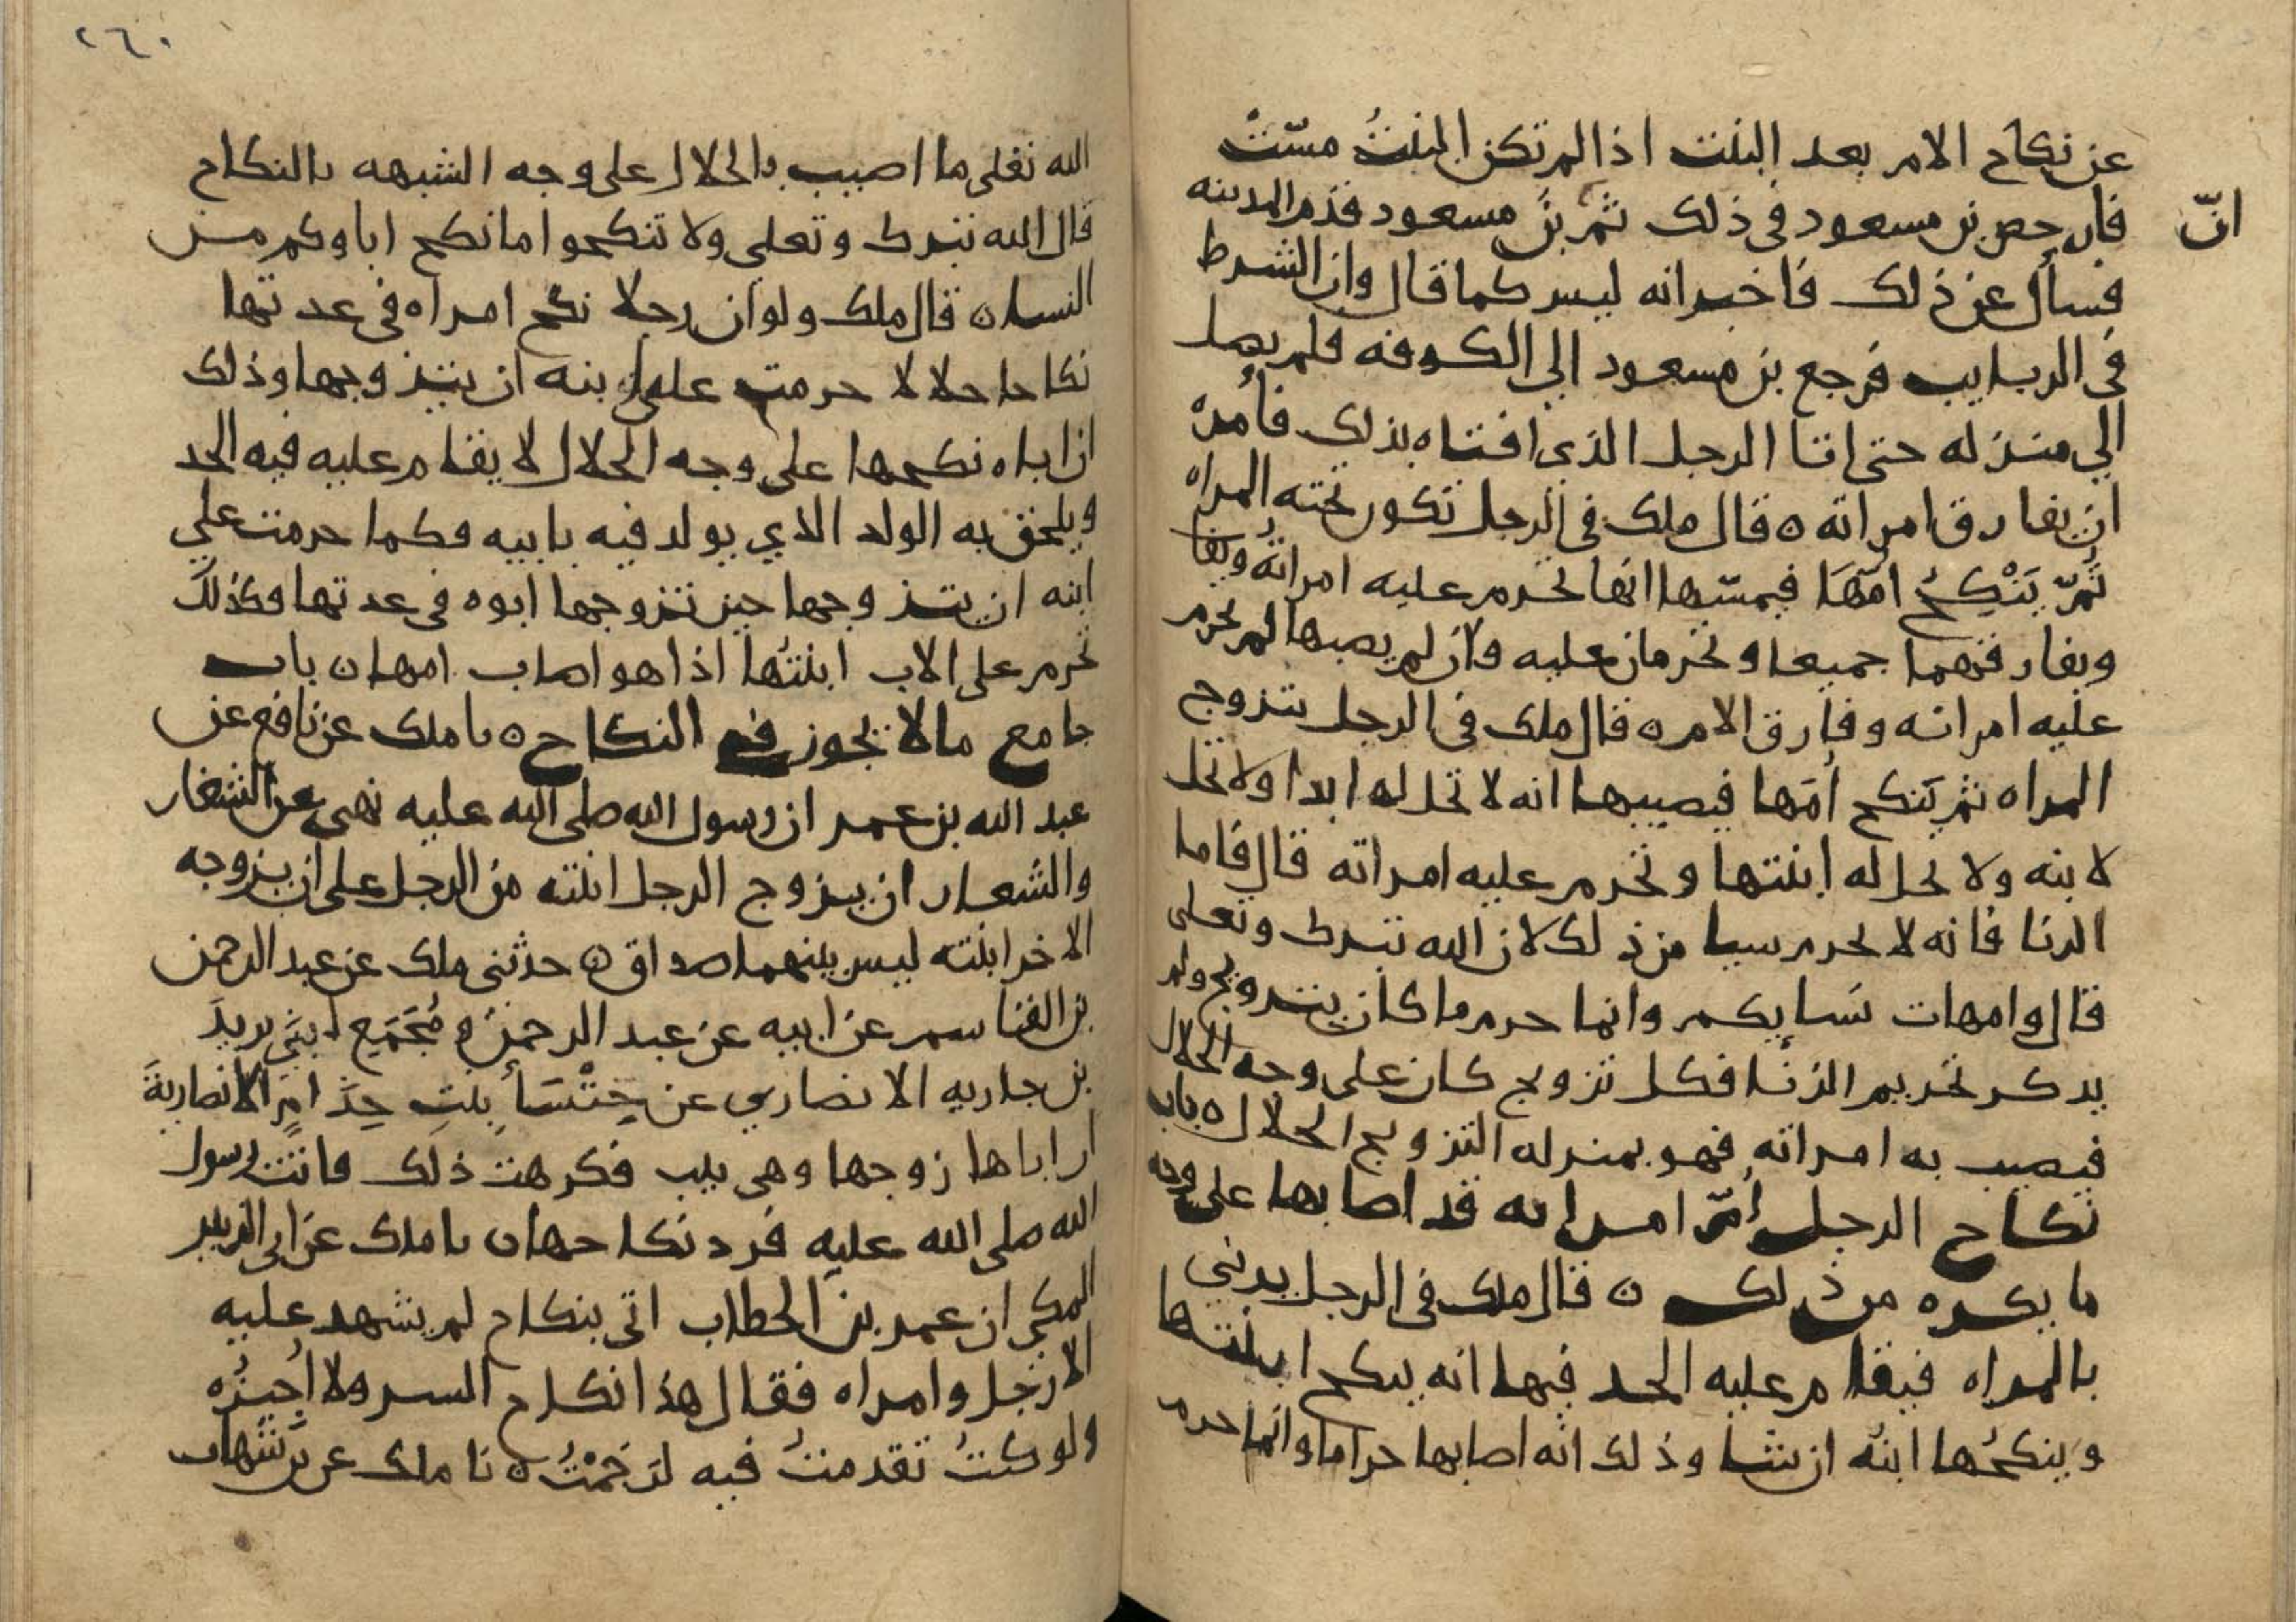 عن نكاح الام بعد البنت اذا لم تكن البنت مسّتْ
فارخص بن مسعود فى ذلك ثمّ انّ بنَ مسعود قدم المدينه
فسأل عن ذلك فاخبر انه ليس كما قال وان الشرط
فى الربايب فرجع بن مسعود الي الكوفه فلم يصل
الي منزله حتى اتا الرجل الذي افتاه بذلك فأمره
ان يفارق امراته ه قال ملك فى الرجل تكون تحته المراه
ثُمّ يَنْكِحُ امّهَا فيمسّها انها تحرم عليه امراتهُ
ويفارقهما جميعا وتحرمان عليه وان لم يصبها لم تحرم
عليه امراته وفارق الام ه قال ملك فى الرجل يتزوج
المراه ثم يَنكح اُمّها فيصيبها انه لا تحل له ابدا ولا تحل
لابنه ولا تحل له ابنتها وتحرم عليه امراته قال فاما
الزنا فانه لا يحرم سيا من ذلك لان الله تبرك وتعلى
قال وامهات نسايكم وانما حرم ما كان بتزويج ولم
يدكر تحريم الزنا فكل تزويج كان على وجه الحلال
فيصيب به امراته فهو بمنزله التزويج الحلال ه باب
نكاح الرجل اُمّ امراه قد اصابها على وجه
ما يكره من ذلك ه قال ملك فى الرجل يزني
بالمراه فيقام عليه الحد فيها انه ينكح ابنتها
وينكحُها ابنُه ان شا وذلك انه اصابها حراما وانما حرم
٢٦٠
الله تعلى ما اصيب بالحلال على وجه الشبهه بالنكاح
قال الله تبرك وتعلى ولا تنكحوا ما نكح اباوكم من
النسا ه قال ملك ولو ان رجلا نكح امراه فى عدتها
نكاحا حلالا حرمت على ابنه ان يتزوجها وذلك
ان اباه نكحها على وجه الحلال لا يقام عليه فيه الحد
ويلحق به الولد الذي يولد فيه بابيه وكما حرمت علي
ابنه ان يتزوجها حين تزوجها ابوه فى عدتها وكذلك
تحرم على الاب ابنتُها اذا هو اصاب امها ه باب
جامع ما لا يجوز فى النكاح ه نا ملك عن نافع عن
عبد الله بن عمر ان رسول الله صلى الله عليه نهى عن الشغار
والشغار ان يزوج الرجل ابنته من الرجل على ان يزوجه
الاخر ابنته ليس بينهما صداق ه حدثنى ملك عن عبد الرحمن
بن القاسم عن ابيه عن عبد الرحمن و مُجَمَّع ابنَي يزيدَ
بن جاريه الانصاري عن خنْسَأ بِنتِ خِذَامٍ الانصاريةَ
ان اباها زوجها وهى ثيب فكرهت ذلك فاتت رسول
الله صلى الله عليه فرد نكاحها ه نا ملك عن ابى الزبير
المكي ان عمر بن الخطاب اتى بنكاح لم يشهد عليه
الا رجل وامراه فقال هذا نكاح السر ولا اُجيزُه
ولو كنتُ تقدمتُ فيه لرَجَمْتُ ه نا ملك عن بن شهاب